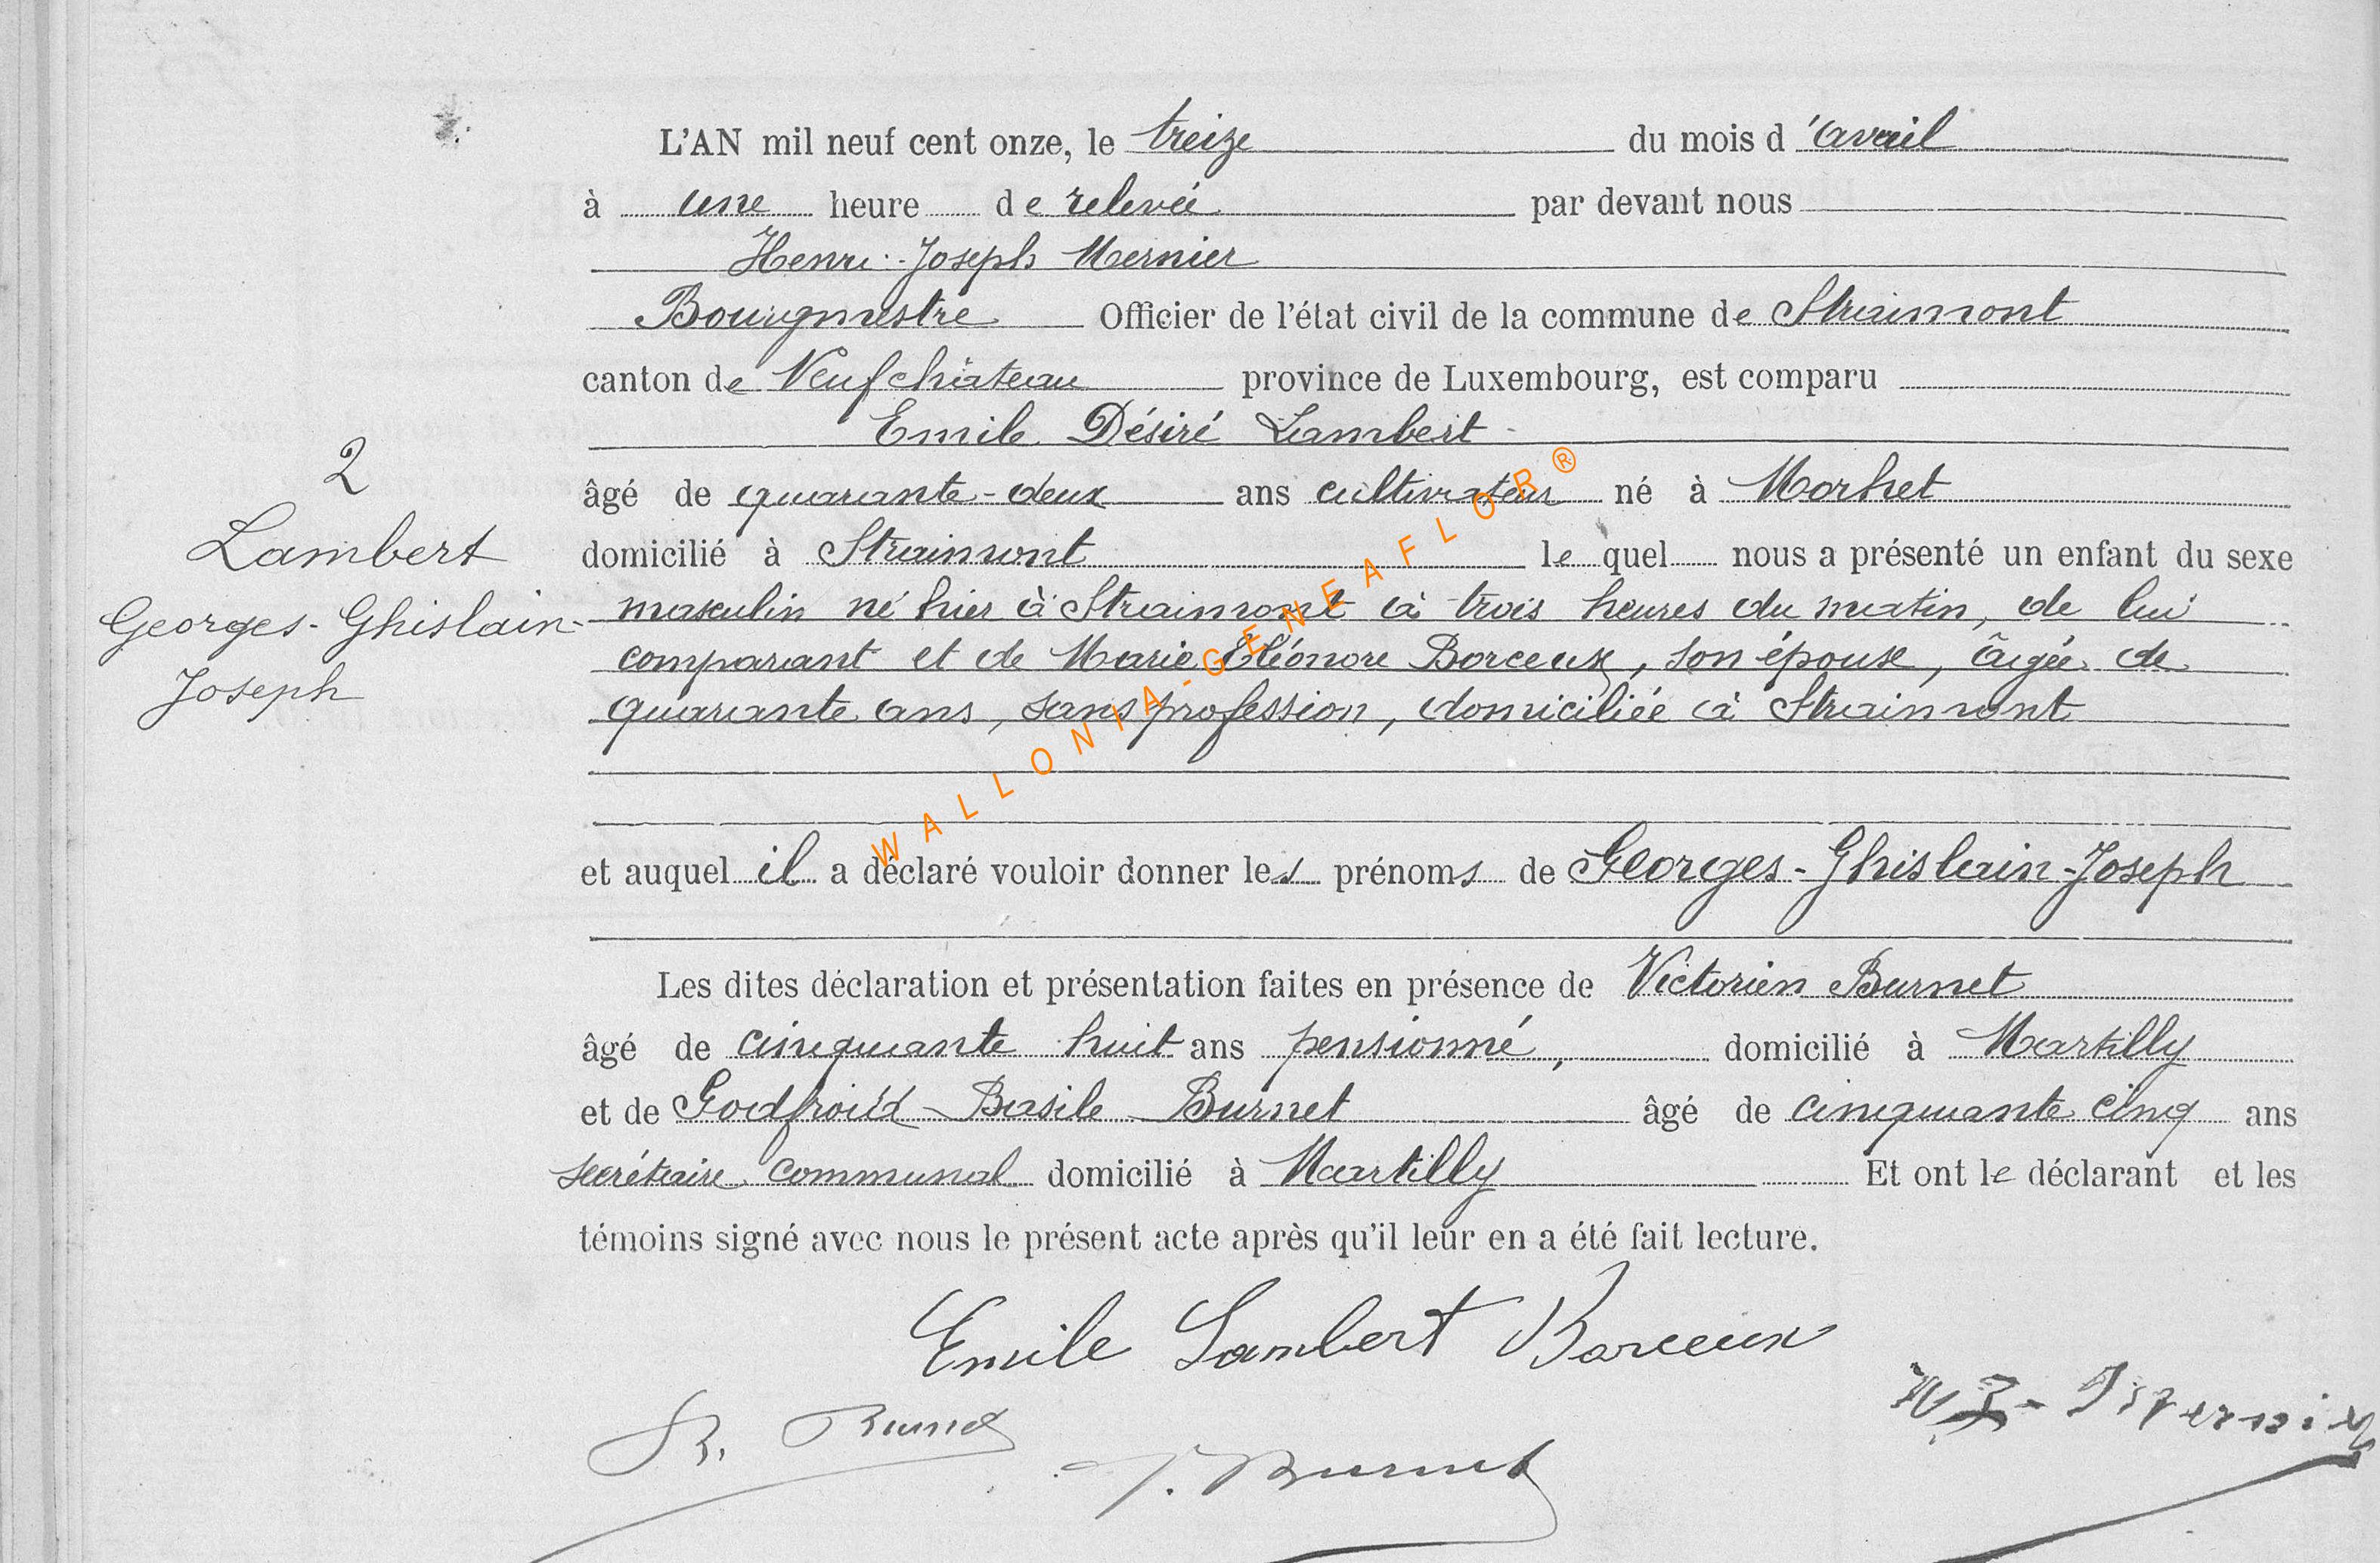 L'AN mil neuf cent onze, le treize du mois d'avril
à une heure de relevée par devant nous
Henri-Joseph Mernier
Bourgmestre Officier de l'état civil de la commune de Straimont
canton de Neufchâteau province de Luxembourg, est comparu
Emile Désiré Lambert
âgé de quarante-deux ans cultivateur né à Morhet
domicilié à Straimont lequel nous a présenté un enfant du sexe
masculin né hier à Straimont à trois heures du matin, de lui
comparant et de Marie Eléonore Borceux, son épouse, âgée de
quarante ans, sans profession, domiciliée à Straimont
et auquel il a déclaré vouloir donner les prénoms de Georges-Ghislain-Joseph
Les dites déclaration et présentation faites en présence de Victorien Burnet
âgé de cinquante huit ans pensionné, domicilié à Martilly
et de Godfroid-Basile Burnet âgé de cinquante cinq ans
secrétaire communal domicilié à Martilly Et ont le déclarant et les
témoins signé avec nous le présent acte après qu'il leur en a été fait lecture.
2
Lambert
Georges-Ghislain-
Joseph
Emile Lambert Borceux
Burnet
V. Burnet
WALLONIA-GENEAFLOR®